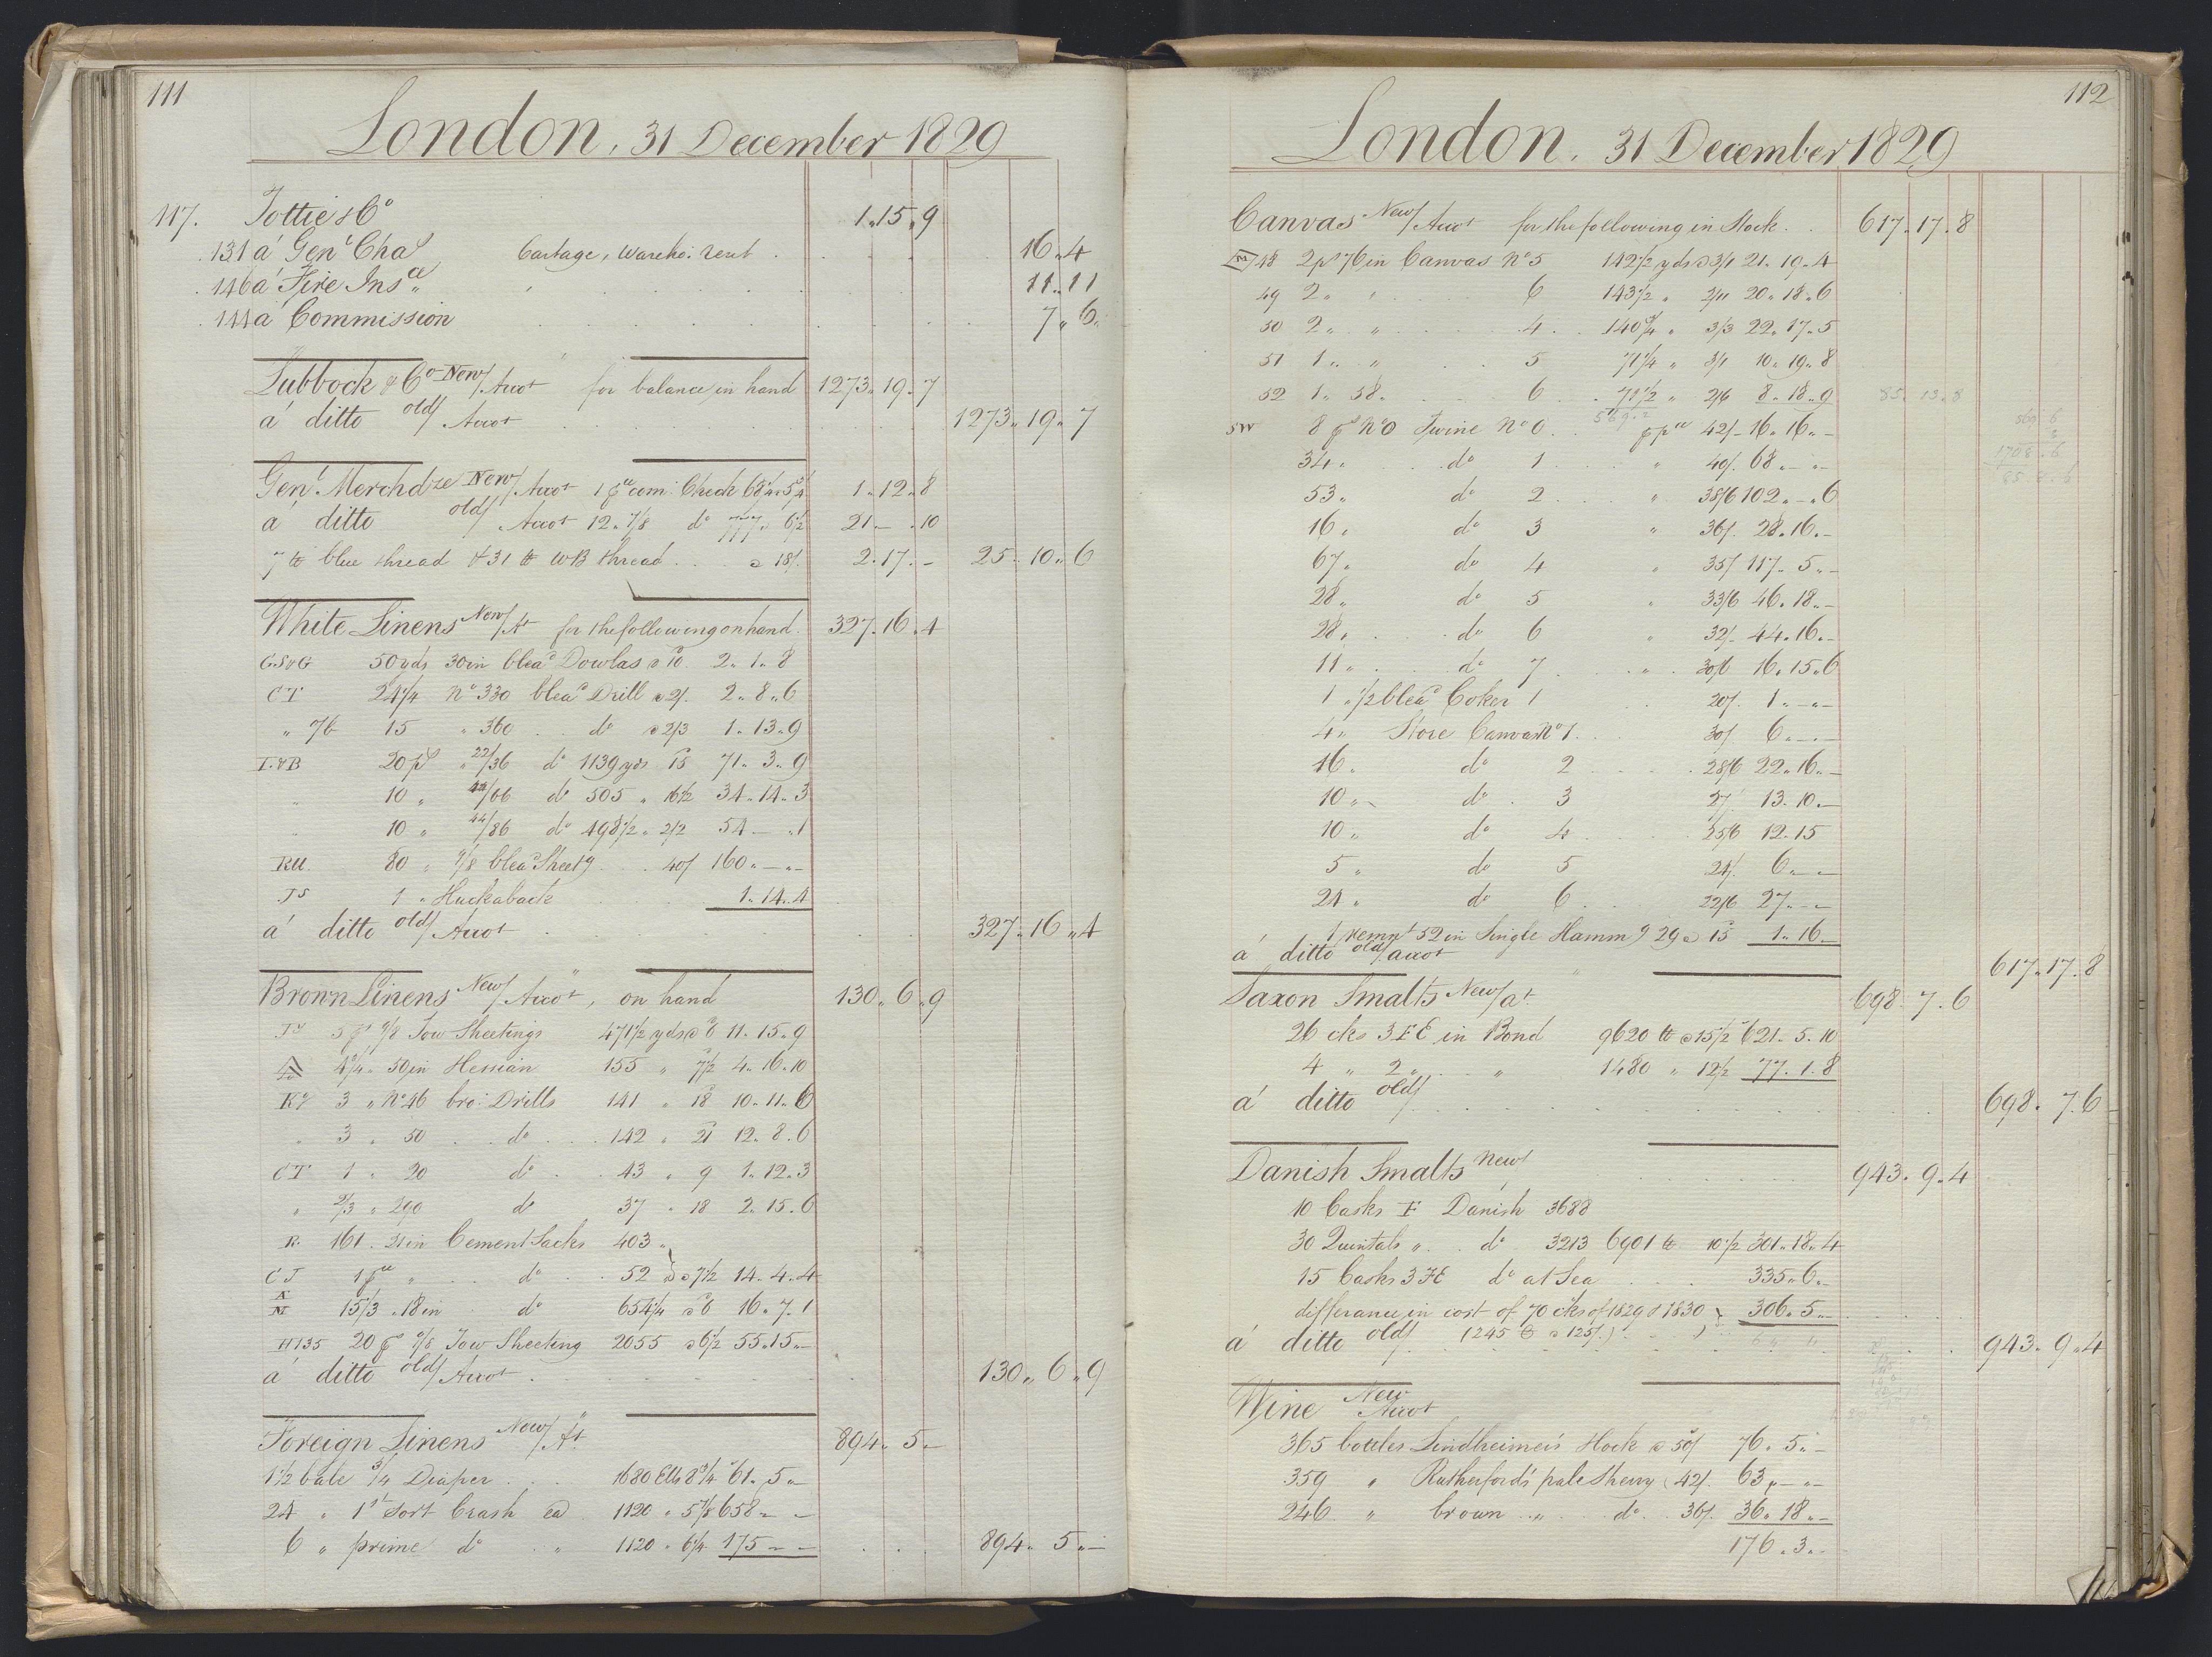 111
London, 31 December 1829
117. Tottie & Co 1.15.9
131 á Genl Cha Cartage, Wareho: rent 16.4
146 á Fire Insce 11.11
144 á Commission 7.6
Lubbock & Co New/Accot for balance in hand 1273.19.7
á ditto old/Accot 1273.19.7
Genl Merchdze New/Accot 1 pce com: Check 68¼ 5¾ 1.12.8
á ditto old/Accot 12. 7/8 do 777 6½ 21.-.10
7 lb blue thread & 31 lb WB thread a 18/. 2.17.- 25.10.6
White Linens New/At for the following on hand 327.16.4
GS&G 50 yds 30in blead Dowlas a 10 2.1.8
CT 24¼ No 330 blead Drill a 2/. 2.8.6
" 76 15 " 360 do a 2/3 1.13.9
I.&B 20 ps 22/36 do 1139 yds 15 71.3.9
" 10 " 44/66 do 505 " 16½ 34.14.3
" 10 " 44/86 do 498½ " 2/2 54.-.1
RM. 80 " 9/8 blead Sheetg 40/ 160.-.-
JS 1 " Huckaback 1.14.4
á ditto old/Accot 327.16.4
Brown Linens New/Accot, on hand 130.6.9
5 ps 9/8 Tow Sheetings 471½ yds a 6 11.15.9
4¾ " 50in Hessian 155 " 7½ 4.16.10
KY 3 " No 46 bro: Drills 141 " 18 10.11.6
" 3 " 50 do 142 " 21 12.8.6
CT 1 " 20 do 43 " 9 1.12.3
" 2/3 " 290 do 37 " 18 2.15.6
R. 161 . 21in Cement Sacks 403 "
CT 1 pce " do 52 a 7½ 14.4.4
15/3 . 18in do 654¼ a 6 16.7.1
H135 20 ps 9/8 Tow Sheeting 2055 a 6½ 55.15.-
á ditto old/Accot 130.6.9
Foreign Linens New/At 894.5.-
1½ bale ¾ Diaper 1680 Ells 8¾ 61.5.-
24 " 1st Sort Crash ea 1120 " 5⅞ 658.-.-
6 " prime do " 1120 " 6¼ 175.-.-
894.5.-
112
London, 31 December 1829
Canvas New/Accot for the following in Stock 617.17.8
48 2 ps 76in Canvas No 5 142½ yds a 3/1 21.19.4
49 2 " " 6 143½ " 2/11 20.18.6
50 2 " " 4 140¾ " 3/3 22.17.5
51 1 " " 5 71¼ " 3/1 10.19.8
52 1 " 38 " 6 71½ " 2/6 8.18.9 85.13.8
SW 8 ps No 0 Twine No 0 p pce 42/- 16.16.-
34 " do 1 " 40/. 68.-.-
53 " do 2 " 38/6 102.-.6
16 " do 3 " 36/. 28.16.-
67 " do 4 " 35/ 117.5.-
28 " do 5 " 33/6 46.18.-
28 " do 6 " 32/- 44.16.-
11 " do 7 " 30/6 16.15.6
1 " ½ blead Coker 1 20/. 1.-.-
4 " Store Canvas No 1 30/ 6.-.-
16 " do 2 28/6 22.16.-
10 " do 3 27/ 13.10.-
10 " do 4 25/6 12.15
5 " do 5 24/. 6.-.-
24 " do 6 22/6 27.-.-
1 remnt 52in Single Hammg 29 a 15 1.16.-
á ditto old/accot 617.17.8
Saxon Smalts New/at. 698.7.6
26 cks 3 FE in Bond 9620 lb a 15½ 621.5.10
4 " 2 " " 1480 " 12½ 77.1.8
á ditto old/ 698.7.6
Danish Smalts New/ 943.9.4
10 Casks F Danish 3688
30 Quintals " do 3213 6901 lb 10½ 301.18.4
15 Casks 3 FE do at Sea 335.6.-
differance in cost of 70 cks of 1829 & 1830 306.5.-
á ditto old/ (245 a 125/.) 943.9.4
Wine New Accot
365 bottles Lindheimer's Hock a 50/ 76.5.-
359 " Rutherford's pale Sherry 42/. 63.-.-
246 " brown " do 36/. 36.18.-
176.3.-